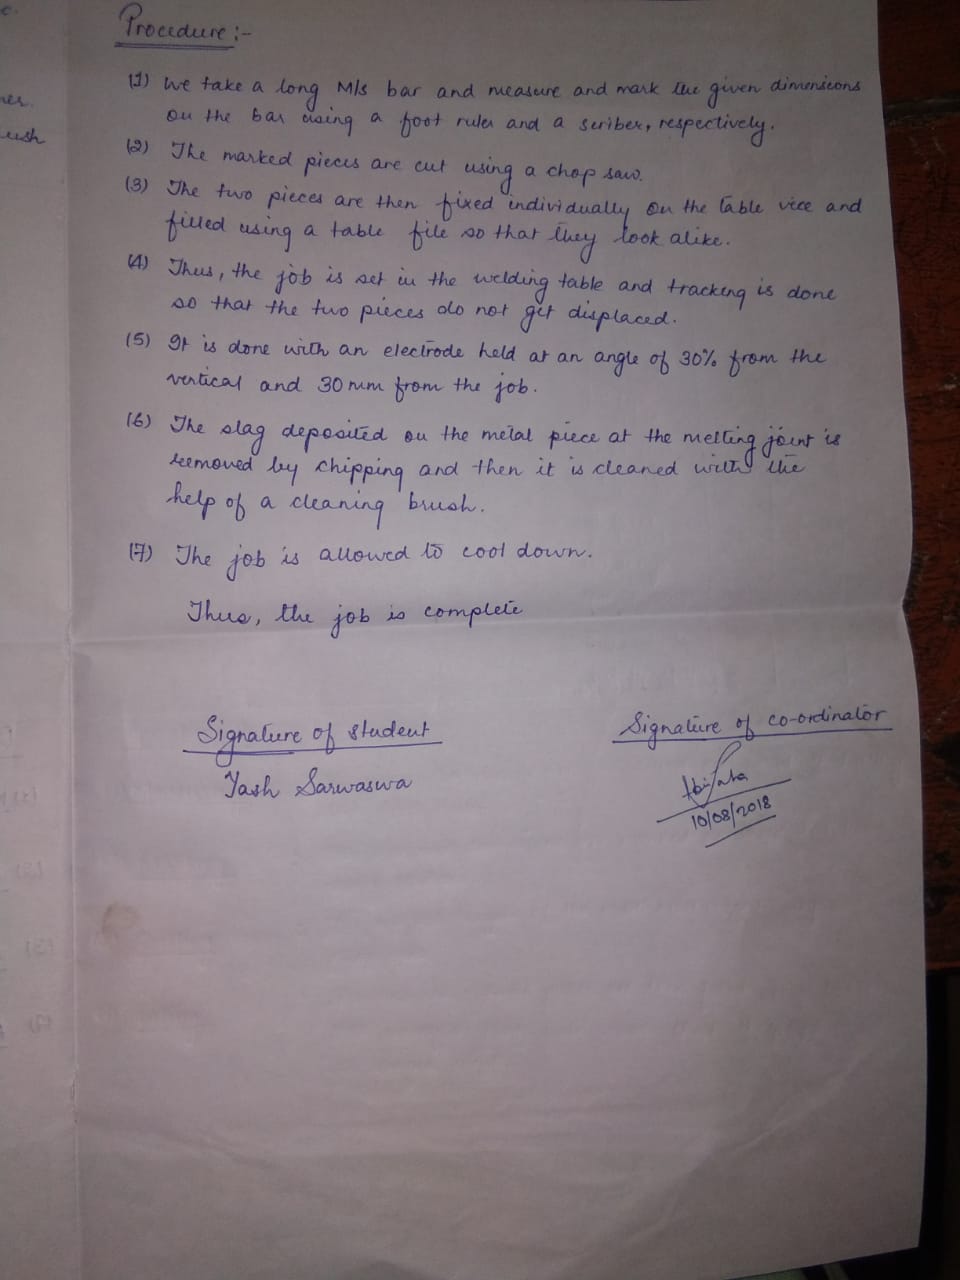 Procedure :-
(1) We take a long M/s bar and measure and mark the given dimensions
on the bar using a foot ruler and a scriber, respectively.
(2) The marked pieces are cut using a chop saw.
(3) The two pieces are then fixed individually on the table vice and
filled using a table file so that they look alike.
(4) Thus, the job is set in the welding table and tracking is done
so that the two pieces do not get displaced.
(5) It is done with an electrode held at an angle of 30% from the
vertical and 30 mm from the job.
(6) The slag deposited on the metal piece at the melting joint is
removed by chipping and then it is cleaned with the
help of a cleaning brush.
(7) The job is allowed to cool down.
Thus, the job is complete
Signature of student
Yash Sarwaswa
Signature of co-ordinator
10/08/2018